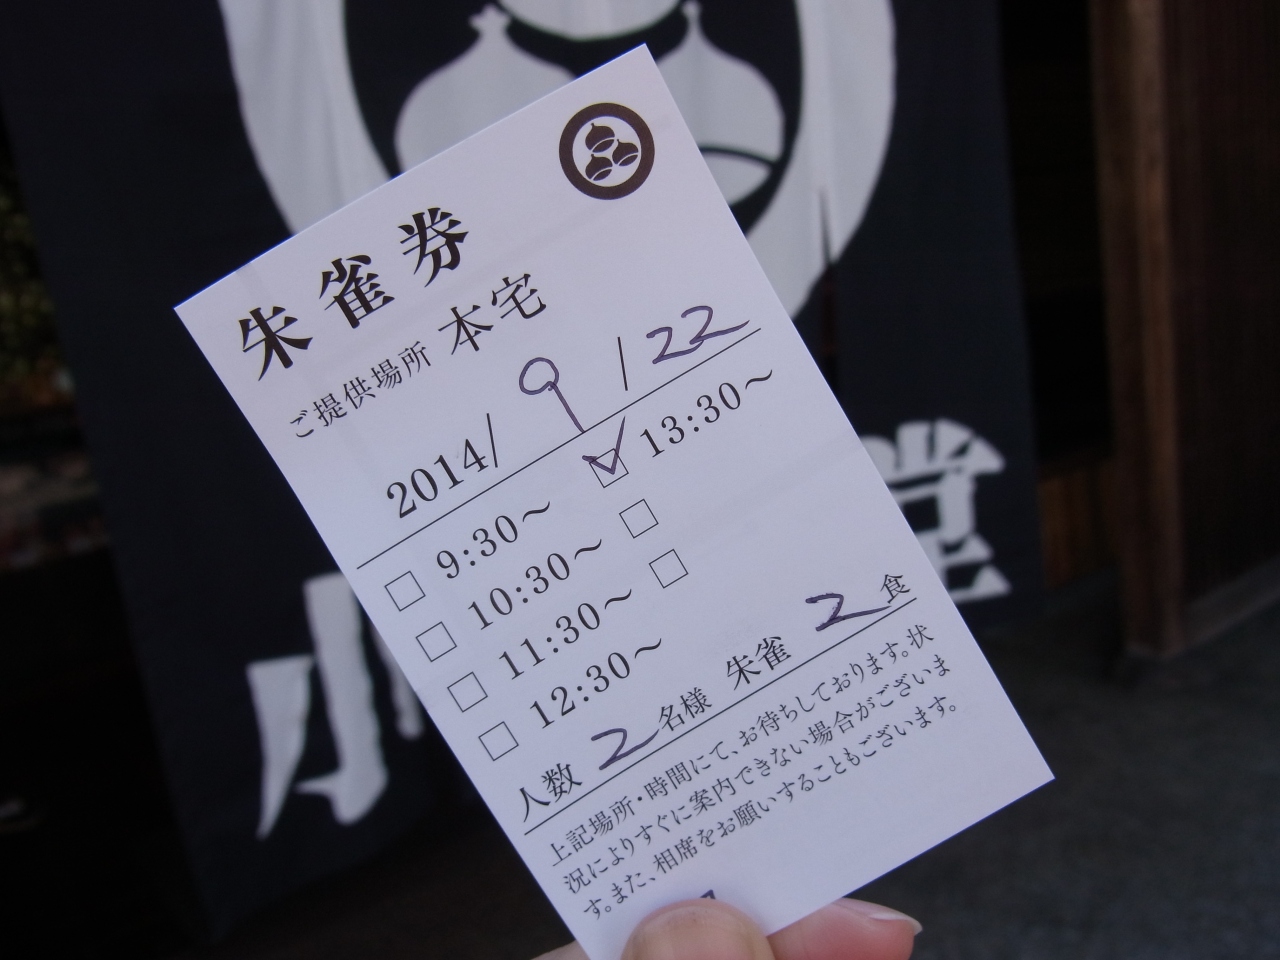 朱雀券
ご提供場所 本宅
2014/ 9 / 22
□ 9:30～ ☑ 13:30～
□ 10:30～ □
□ 11:30～ □
□ 12:30～
人数 2 名様 朱雀 2 食
上記場所・時間にて、お待ちしております。状
況によりすぐに案内できない場合がございま
す。また、相席をお願いすることもございます。
小
堂